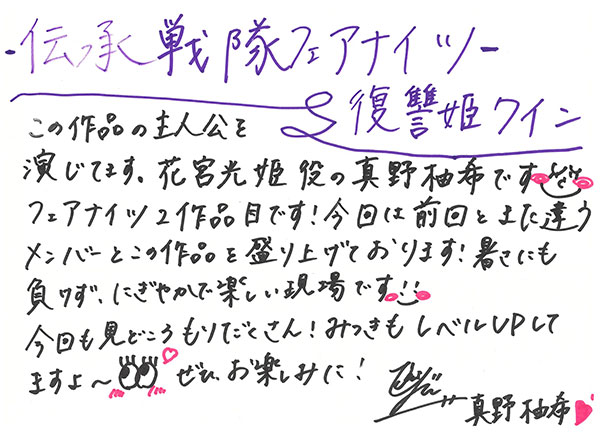 -伝承戦隊フェアナイツ-
復讐姫クイン
この作品の主人公を
演じてます、花宮光姫役の真野柚希です
フェアナイツ2作品目です!今回は前回とまた違う
メンバーとこの作品を盛り上げております!暑さにも
負けず、にぎやかで楽しい現場です!!
今回も見どころもりだくさん!みつきもレベルUPして
ますよ〜 ぜひ、お楽しみに!
真野柚希